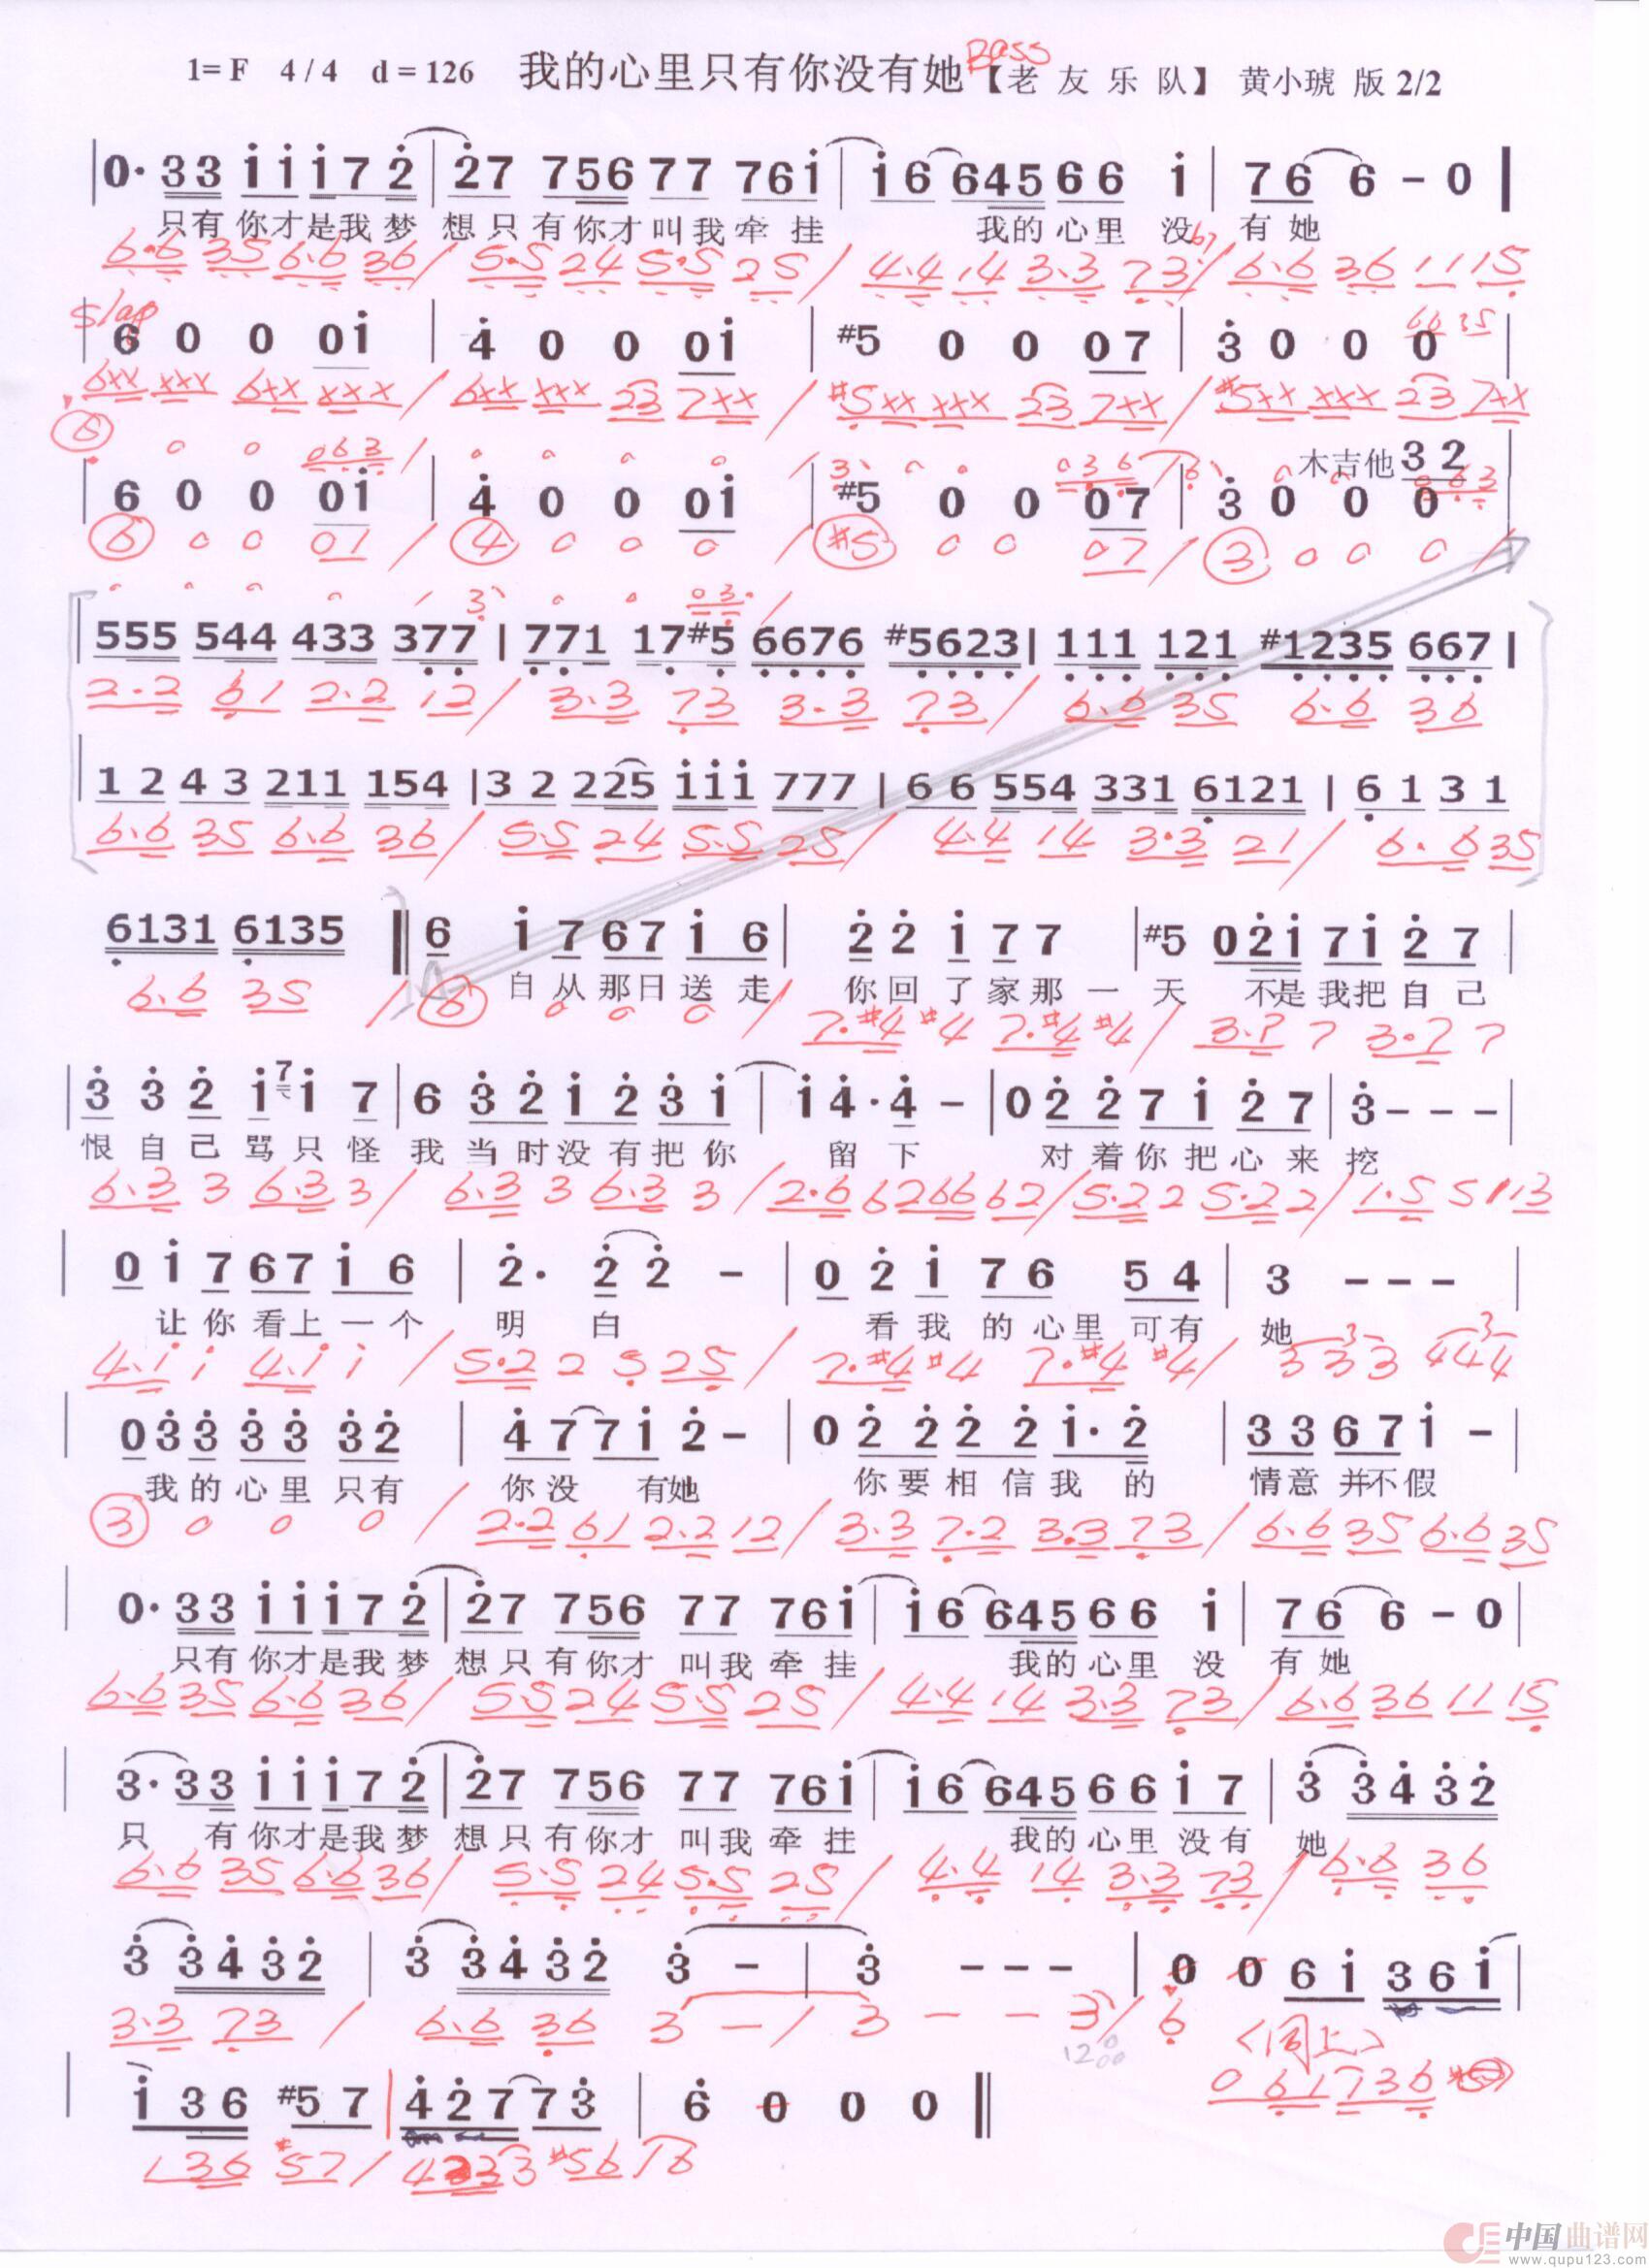 1= F 4 / 4 d = 126 我的心里只有你没有她 Bass 【老 友 乐 队】 黄小琥 版 2/2
0· 33 11172 | 27 756 77 761 | 16 64566 1 | 76 6 - 0
只有 你才是我梦 想只有你才叫我牵挂 我的心里没 有她
6·6 35 6·6 36 / 5·5 24 5·5 25 / 4·4 14 3·3 73 / 6·6 36 11 15
slap
| 6 0 0 01 | 4 0 0 01 | #5 0 0 07 | 3 0 0 0 |
6xx xxx 6xx xxx / 6xx xxx 23 7xx / #5xx xxx 23 7xx / #5xx xxx 23 7xx
木吉他 3 2
| 6 0 0 01 | 4 0 0 01 | #5 0 0 07 | 3 0 0 0 |
6 0 0 01 / 4 0 0 0 / #5 0 0 07 / 3 0 0 0 /
| 555 544 433 377 | 771 17#5 6676 #5623 | 111 121 #1235 667 |
2·2 61 2·2 12 / 3·3 73 3·3 73 / 6·6 35 6·6 36
| 1 2 4 3 211 154 | 3 2 225 111 777 | 6 6 554 331 6121 | 6 1 3 1
6·6 35 6·6 36 / 5·5 24 5·5 25 / 4·4 14 3·3 21 / 6·6 35
6131 6135 | 6 1 7 67 1 6 | 2 2 1 7 7 | #5 021 71 2 7 |
自从那日送走 你回了家那一天 不是我把自己
6·6 35 / 6 0 0 0 / 7·#4 #4 7·#4 #4 / 3·7 7 3·7 7
| 3 3 2 1 7 1 7 | 6 3 2 1 2 3 1 | 1 4· 4 - | 0 2 2 7 1 2 7 | 3 - - - |
恨自己骂只怪 我当时没有把你 留下 对着你把心来挖
6·3 3 6·3 3 / 6·3 3 6·3 3 / 2·6 6 26 6 62 / 5·2 2 5·2 2 / 1·5 5 1 13
| 0 1 7 67 1 6 | 2· 2 2 - | 0 2 1 7 6 5 4 | 3 - - - |
让你看上一个 明白 看我的心里可有 她
4·1 1 4·1 1 / 5·2 2 5 25 / 7·#4 #4 7·#4 #4 / 333 444
| 0 3 3 3 3 32 | 4 7 71 2 - | 0 2 2 2 2 1· 2 | 33 67 1 - |
我的心里只有 你没有她 你要相信我的 情意并不假
3 0 0 0 / 2·2 61 2·2 12 / 3·3 7·2 3·3 73 / 6·6 35 6·6 35
| 0· 33 11172 | 27 756 77 761 | 16 64566 1 | 76 6 - 0 |
只有你才是我梦 想只有你才叫我牵挂 我的心里没 有她
6·6 35 6·6 36 / 55 24 5·5 25 / 4·4 14 3·3 73 / 6·6 36 11 15
| 3· 33 11172 | 27 756 77 761 | 16 64566 17 | 3 3432
只 有你才是我梦 想只有你才叫我牵挂 我的心里没有 她
6·6 35 6·6 36 / 5·5 24 5·5 25 / 4·4 14 3·3 73 / 6·6 36
3 3432 | 3 3432 3 - | 3 - - - | 0 0 61 361 |
3·3 73 / 6·6 36 3 - / 3 - - 3 / 6 <同上>
| 1 36 #57 | 427 73 | 6 0 0 0
1 36 #57 /
中国曲谱网
www.qupu123.com